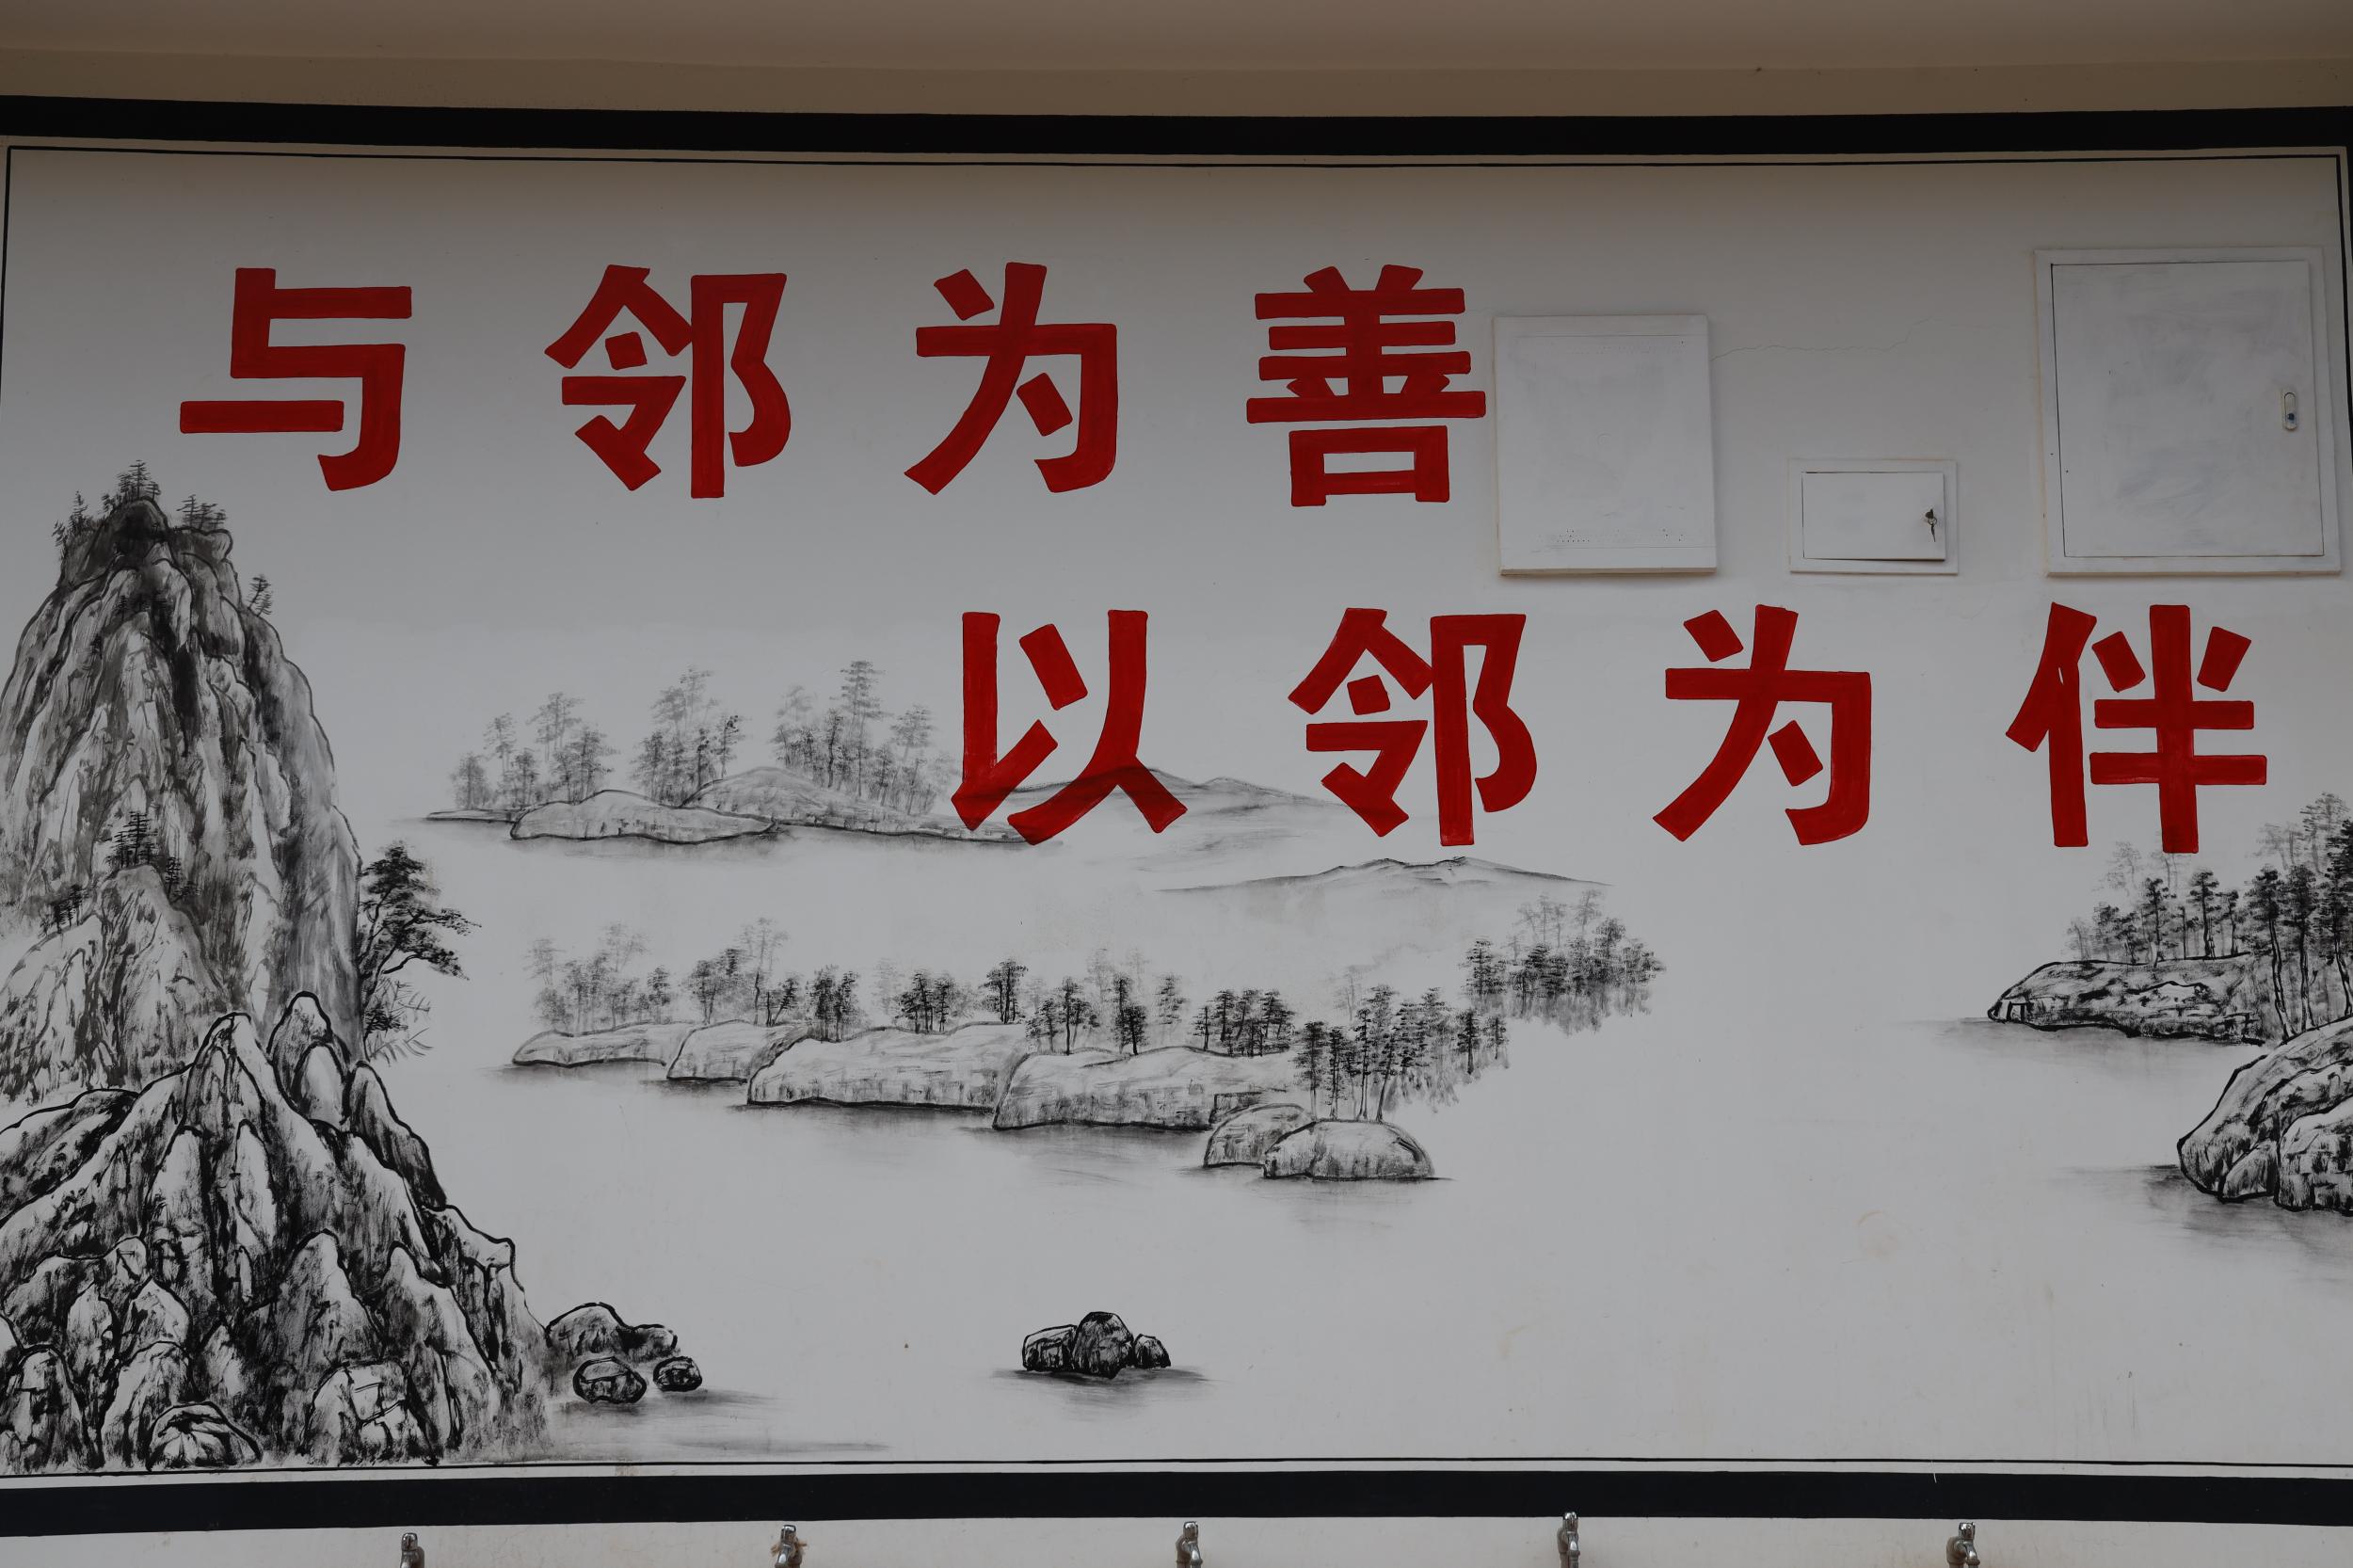 与邻为善
以邻为伴